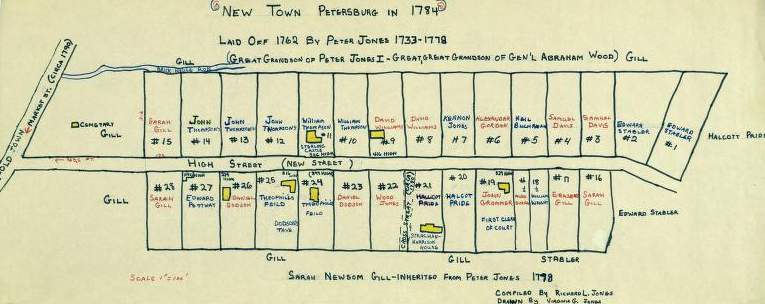 NEW TOWN PETERSBURG IN 1784
LAID OFF 1762 BY PETER JONES 1733-1778
(GREAT GRANDSON OF PETER JONES I - GREAT, GREAT GRANDSON OF GEN'L ABRAHAM WOOD)
GILL
GILL
OLD TOWN
MARKET ST. (CIRCA 1790)
CEMETARY
GILL
SARAH GILL #15
JOHN THOMPSON #14
JOHN THOMPSON #13
JOHN THOMPSON #12
WILLIAM THOMPSON #11
STERLING CASTLE
WILLIAM THOMPSON #10
DAVID WILLIAMS #9
HIGH
DAVID WILLIAMS #8
KENNON JONES #7
ALEXANDER GORDON #6
NEIL BUCHANAN #5
SAMUEL DAVIS #4
SAMUEL DAVIS #3
EDWARD STABLER #2
EDWARD STABLER #1
HALCOTT PRIDE
HIGH STREET (NEW STREET)
GILL
#28 SARAH GILL
#27 EDWARD
#26 DANIEL DODSON
#25 THEOPHILUS FEILD
DODSON'S TAVE
#24 THEOPHILUS FEILD
#23 DANIEL DODSON
#22 WOOD JONES
CROSS STREET
#21 HALCOT PRIDE
STRACHAN-HARRISON HOUSE
#20 HALCOT PRIDE
#19 JOHN GRAMMER
FIRST CLERK OF COURT
18
#17 ERASMUS GILL
#16 SARAH GILL
EDWARD STABLER
GILL
GILL
STABLER
SCALE 1"=100'
SARAH NEWSOM GILL-INHERITED FROM PETER JONES 1778
COMPILED BY RICHARD L. JONES
DRAWN BY VIRGINIA G. JONES